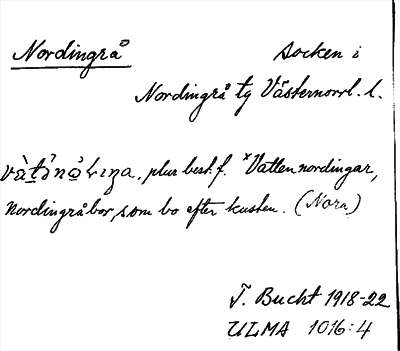 Nordingrå socken i
Nordingrå tg Västernorrl. l.
plur best. f. *Vattennordingar,
Nordingråbor, som bo efter kusten. (Nora)
T. Bucht 1918-22
ULMA 1016:4